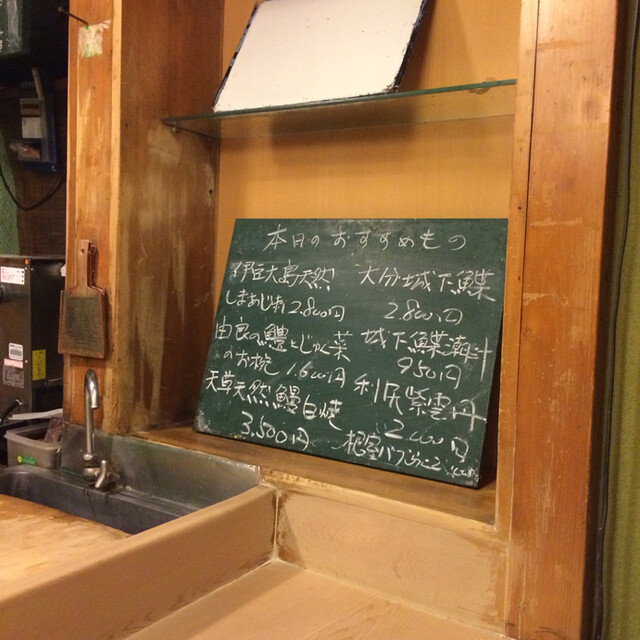 本日のおすすめもの
伊豆大島天然
しまあじ刺 2.800円
由良の鱧とじゅん菜
のお椀 1.600円
天草天然鰻白焼
3.500円
大分城下鰈
2.800円
城下鰈潮汁
950円
利尻紫雲丹
2.000円
根室バフンうに